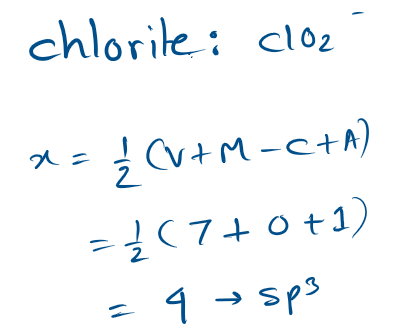 chlorite: ClO₂⁻
x = 1/2 (V+M-C+A)
= 1/2 (7+0+1)
= 4 → sp³